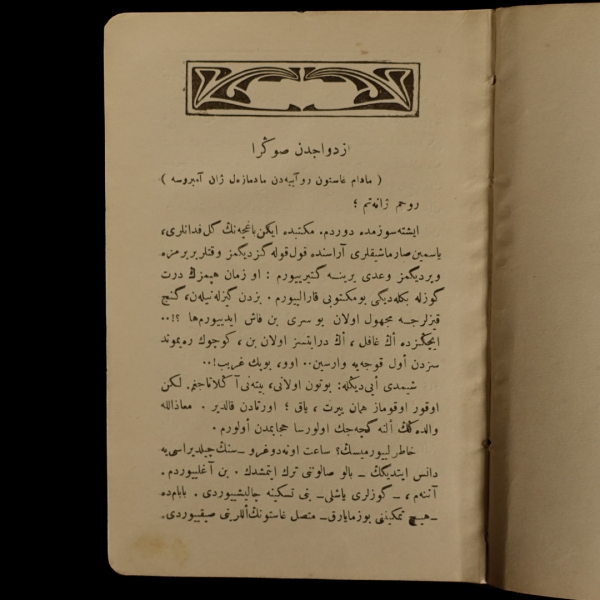 ازدواجدن صوڭرا
( مادام غاستون روآییه‌دن مادمازه‌ل ژان آمبروسه )
روحم ژانه‌تم ؛
ایشته سوزمده دوردم. مکتبده ایکن باغچه‌نڭ گل فدانلری،
یاسمین صارماشیقلری آراسنده قول قوله گزدیگمز وقتلر بربرمزه
ویردیگمز وعدی یرینــه گتیرییورم : او زمان هپمزڭ درت
گوزله بکله‌دیگی بو مکتوبی قارالییورم . بزدن گیزله‌نیله‌ن، گنج
قیزلرجــه مجهول اولان بو سری بن فاش ایدییورم‌ها ؟!..
ایچڭزده أڭ غافل ، أڭ درایتسز اولان بن ، کوچوك ره‌یموند
سزدن أول قوجه‌یه وارسین.. اوو، بو پك غریب!..
شیمدی أیی دیڭله: بوتون اولانی، بیته‌نی آڭلاتاجغم. لکن
اوقور اوقوماز همان ییرت ، یاق ؛ اورتادن قالدیر . معاذالله
والده‌ڭڭ ألنه گچه‌جك اولورسا حجابمدن أولورم .
خاطرلییورمیسڭ؟ ساعت اونه دوغرو ــ سنڭ چیلدیراسی‌یه
دانس ایتدیگڭ ــ بالو صالوننی ترك ایتمشدك . بن آغلییوردم .
آننه‌م ، ــ گوزلری یاشلی ــ بنی تسکینه چالیشییوردی . بابام‌ده
ــ هیــچ تمکیننی بوزمایارق ــ متصل غاستونڭ أللرینی صیقییوردی.